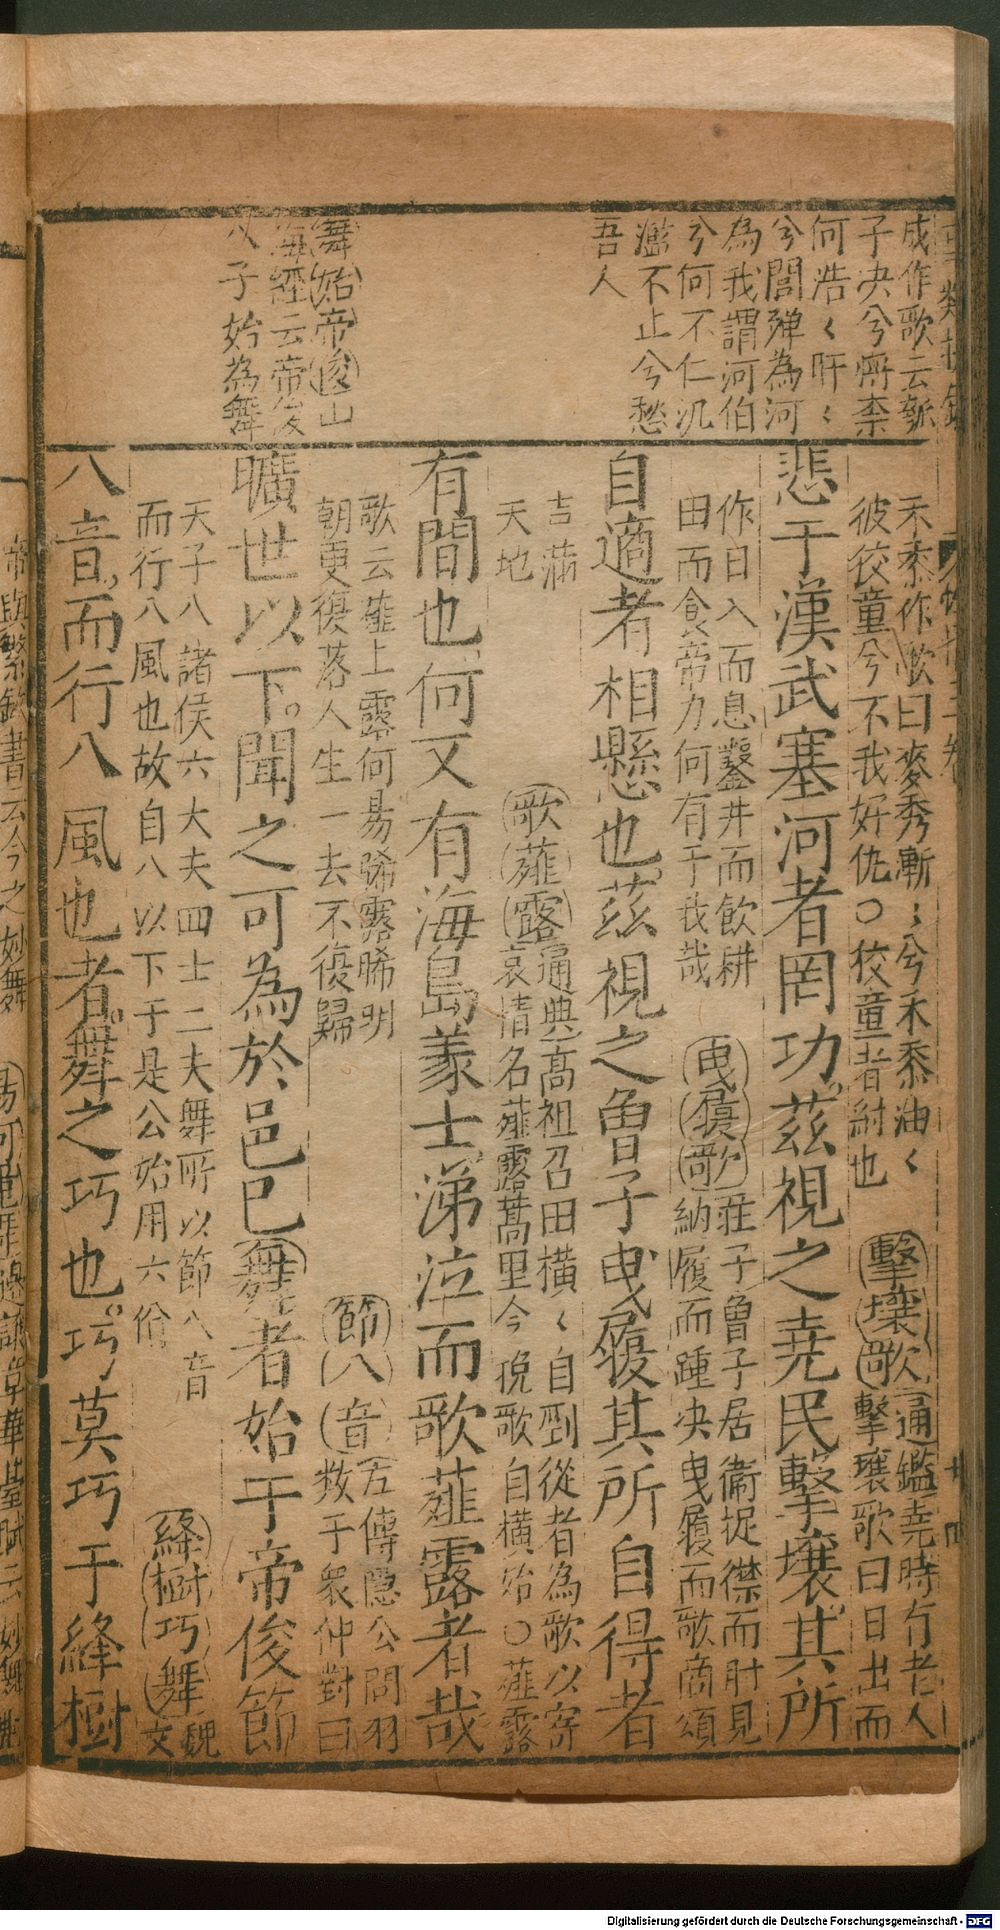 成作歌云瓠
子決兮將柰
何浩〻旰〻
兮閭殫為河
為我謂河伯
兮何不仁汎
濫不止兮愁
吾人
舞始帝俊山
海經云帝俊
八子始為舞
禾黍作歌曰麥秀漸〻兮禾黍油〻
彼狡童兮不我好仇○狡童者紂也
擊壤歌通鑑堯時有老人
擊壤歌曰日出而
悲于漢武塞河者罔功茲視之堯民擊壤其所
作日入而息鑿井而飲耕
田而食帝力何有于我哉
曳履歌莊子曾子居衛捉襟而肘見
納履而踵決曳履而歌商頌
自適者相懸也茲視之曾子曳履其所自得者
吉蒲
天地
歌薤露通典高祖召田橫〻自剄從者為歌以寄
哀情名薤露蒿里今挽歌自橫始○薤露
有間也何又有海島義士涕泣而歌薤露者哉
歌云薤上露何易晞露晞明
朝更復落人生一去不復歸
節八音左傳隱公問羽
数于衆仲對曰
曠世以下聞之可為於邑巳舞者始于帝俊節
天子八諸侯六大夫四士二夫舞所以節八音
而行八風也故自八以下于是公始用六佾
絳樹巧舞魏
文
八音而行八風也者舞之巧也巧莫巧于絳樹
帝與繁欽書云今之妙舞
Digitalisierung gefördert durch die Deutsche Forschungsgemeinschaft - DFG